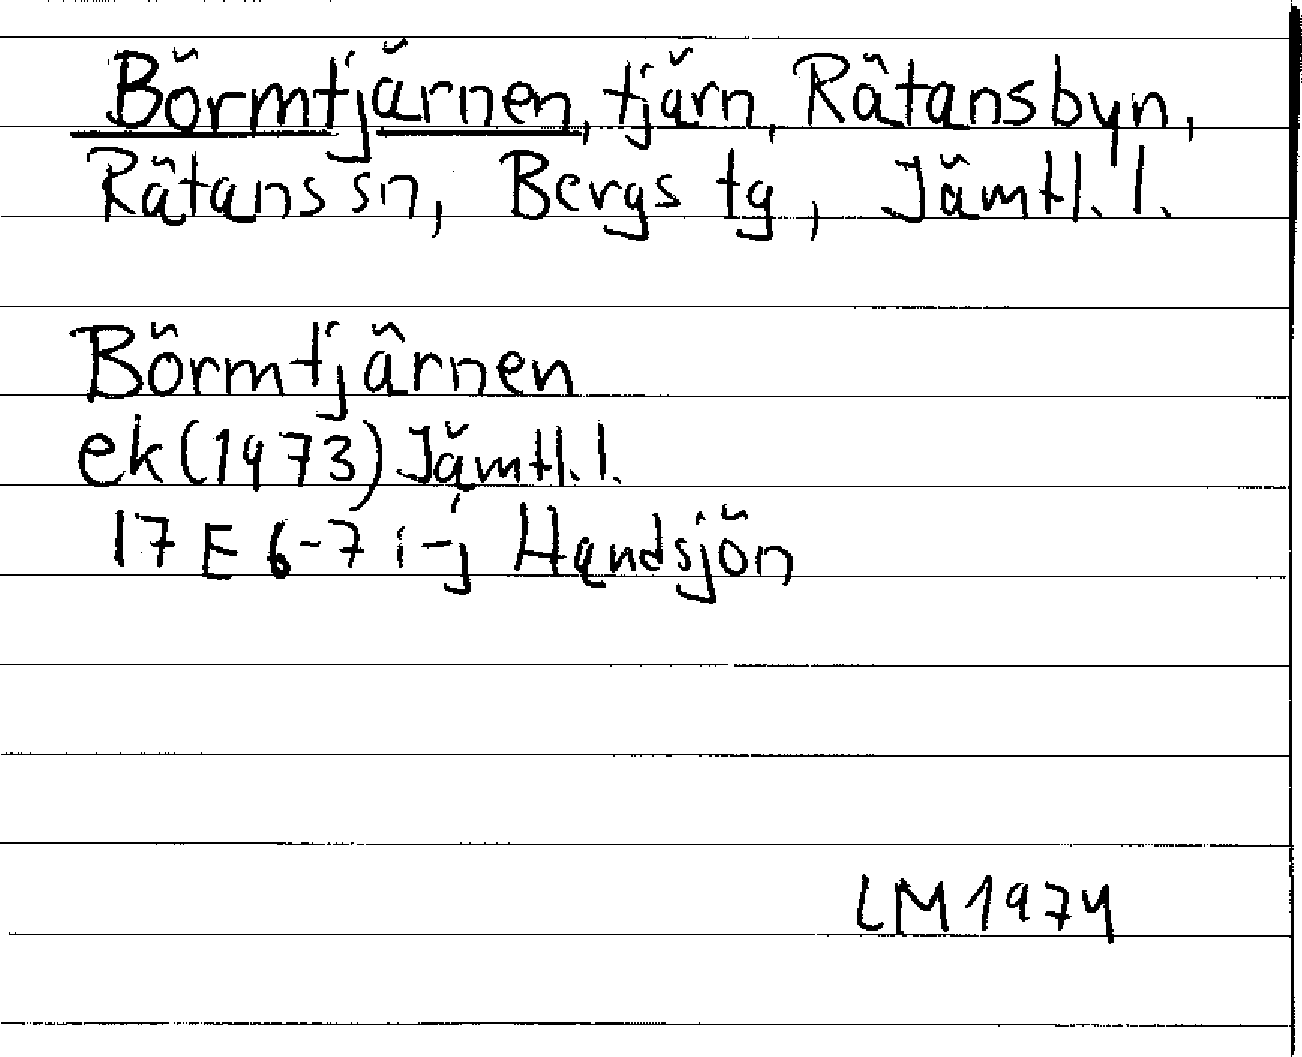 Börmtjärnen, tjärn, Rätansbyn,
Rätans sn, Bergs tg, Jämtl. l.
Börmtjärnen
ek (1973) Jämtl. l.
17 E 6-7 i-j Handsjön
LM 1974